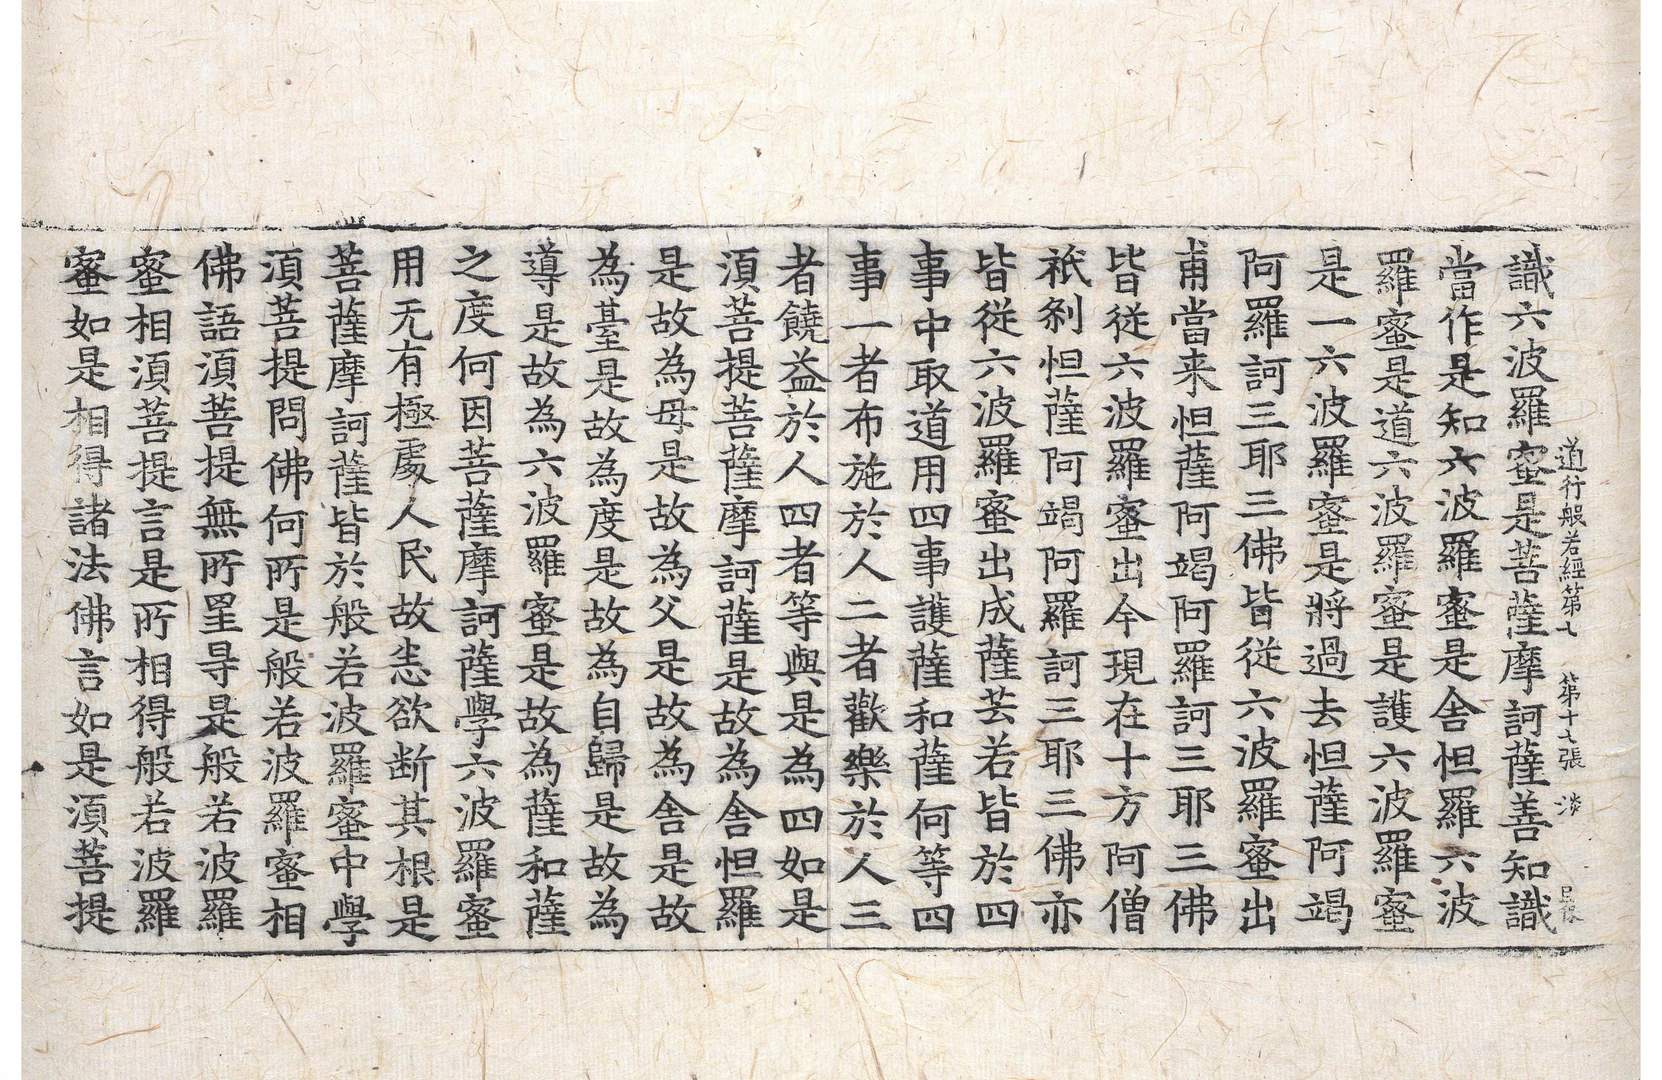 道行般若經第七 第十七張 淡
識六波羅蜜是菩薩摩訶薩善知識
當作是知六波羅蜜是舍怛羅六波
羅蜜是道六波羅蜜是護六波羅蜜
是一六波羅蜜是將過去怛薩阿竭
阿羅訶三耶三佛皆從六波羅蜜出
甫當来怛薩阿竭阿羅訶三耶三佛
皆從六波羅蜜出今現在十方阿僧
祇剎怛薩阿竭阿羅訶三耶三佛亦
皆從六波羅蜜出成薩芸若皆於四
事中取道用四事護薩和薩何等四
事一者布施於人二者歡樂於人三
者饒益於人四者等與是為四如是
湏菩提菩薩摩訶薩是故為舍怛羅
是故為母是故為父是故為舍是故
為臺是故為度是故為自歸是故為
導是故為六波羅蜜是故為薩和薩
之度何因菩薩摩訶薩學六波羅蜜
用无有極處人民故恙欲断其根是
菩薩摩訶薩皆於般若波羅蜜中學
湏菩提問佛何所是般若波羅蜜相
佛語湏菩提無所罣㝵是般若波羅
蜜相湏菩提言是所相得般若波羅
蜜如是相得諸法佛言如是湏菩提